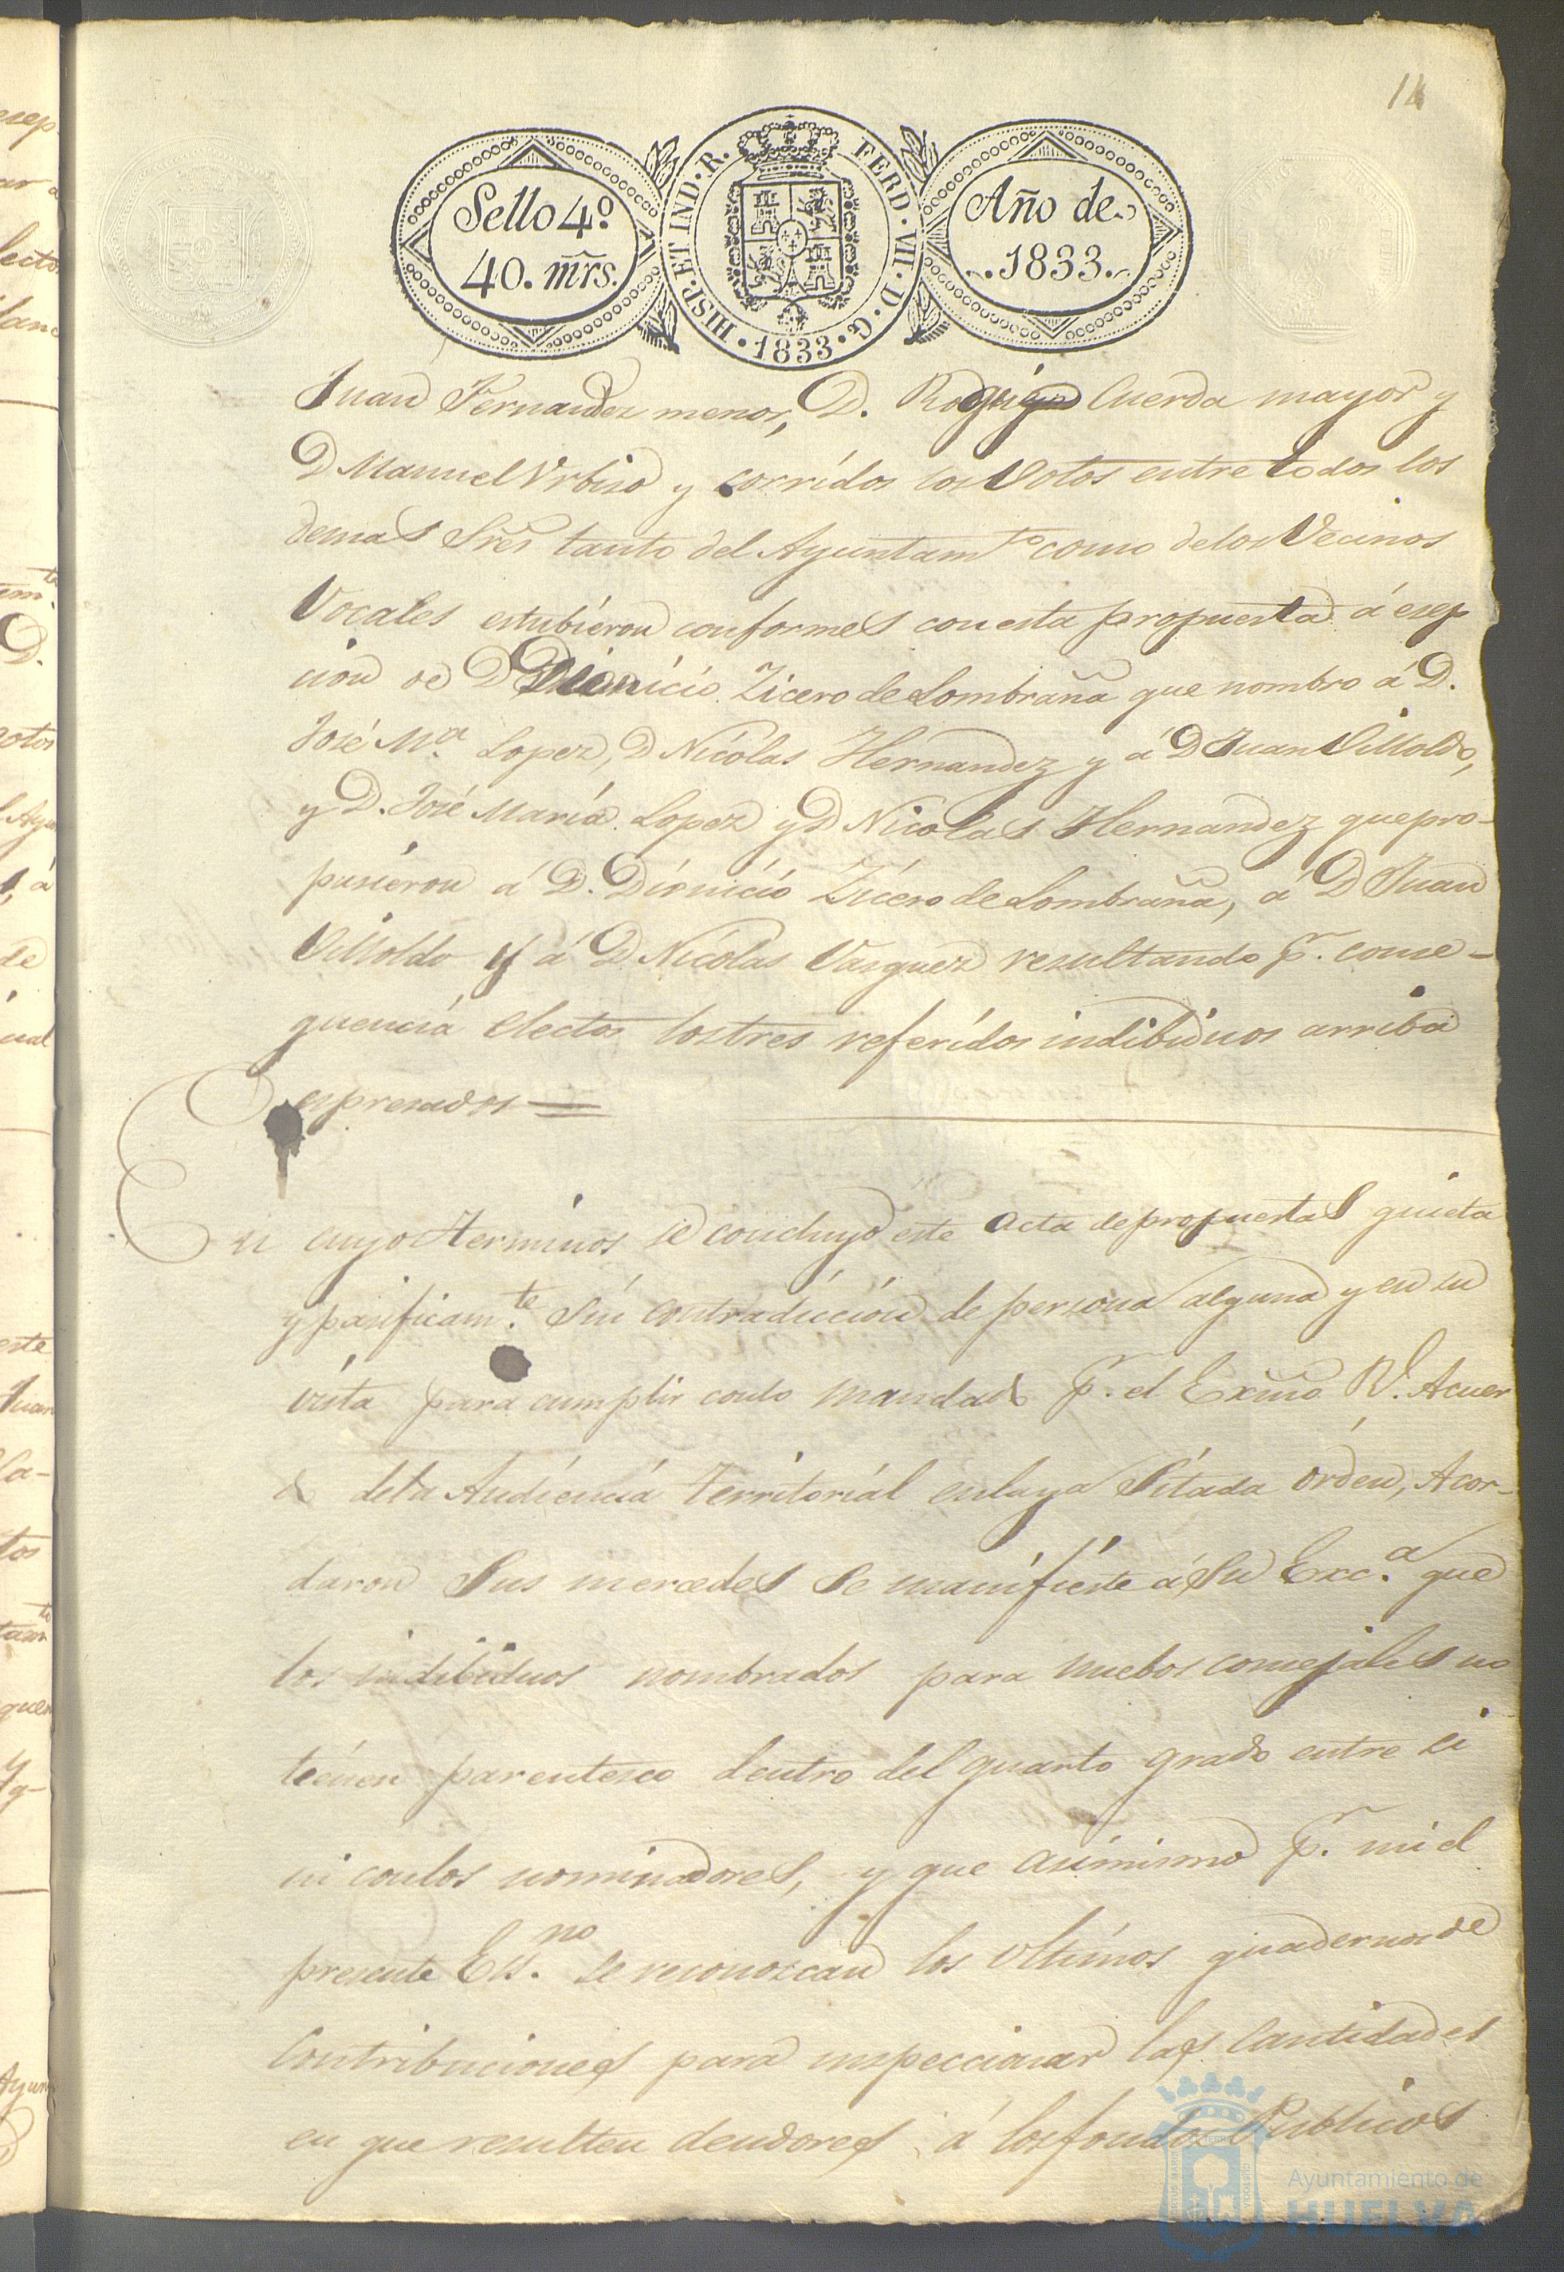 14
Sello 4º
40. mrs.
HISP. ET IND. R. FERD. VII. D. G. 1833.
Año de
1833.
Juan Fernandez menor, D. Cuerda mayor y
D Manuel Urbiso y corridos los Votos entre todos los
demas Sres tanto del Ayuntamto como delos Vecinos
Vocales estubieron conformes con esta propuesta á esep
cion de D Dionicio Zicero de Lombraña que nombro á D.
José Ma. Lopez, D Nicolas Hernandez y á D Juan Villoldo,
y D. José María Lopez y D Nicolas Hernandez que pro-
pusieron á D. Dionicio Zicero de Lombraña, á D Juan
Villoldo y á D Nicolas Vasquez resultando pr. conse-
quencia electos los tres referidos indibiduos arriba
espresados =
En cuyo Terminos se concluyo este Acta de propuestas quieta
y pasificamte. sin contradiccion de persona alguna y en su
vista para cumplir con lo mandado pr. el Exmo Rl. Acuer
do dela Audiencia Territorial en la ya Sitada orden, Acor-
daron Sus mercedes Se manifieste á Su Exca. que
los indibiduos nombrados para nuebos consejales no
tienen parentesco dentro del quarto grado entre si
ni con los nominadores, y que asimismo pr. mi el
presente Essno. se reconozcan los ultimos quadernos de
Contribuciones para inspeccionar las Cantidades
en que resulten deudores á los fondos Publicos
Ayuntamiento de
HUELVA